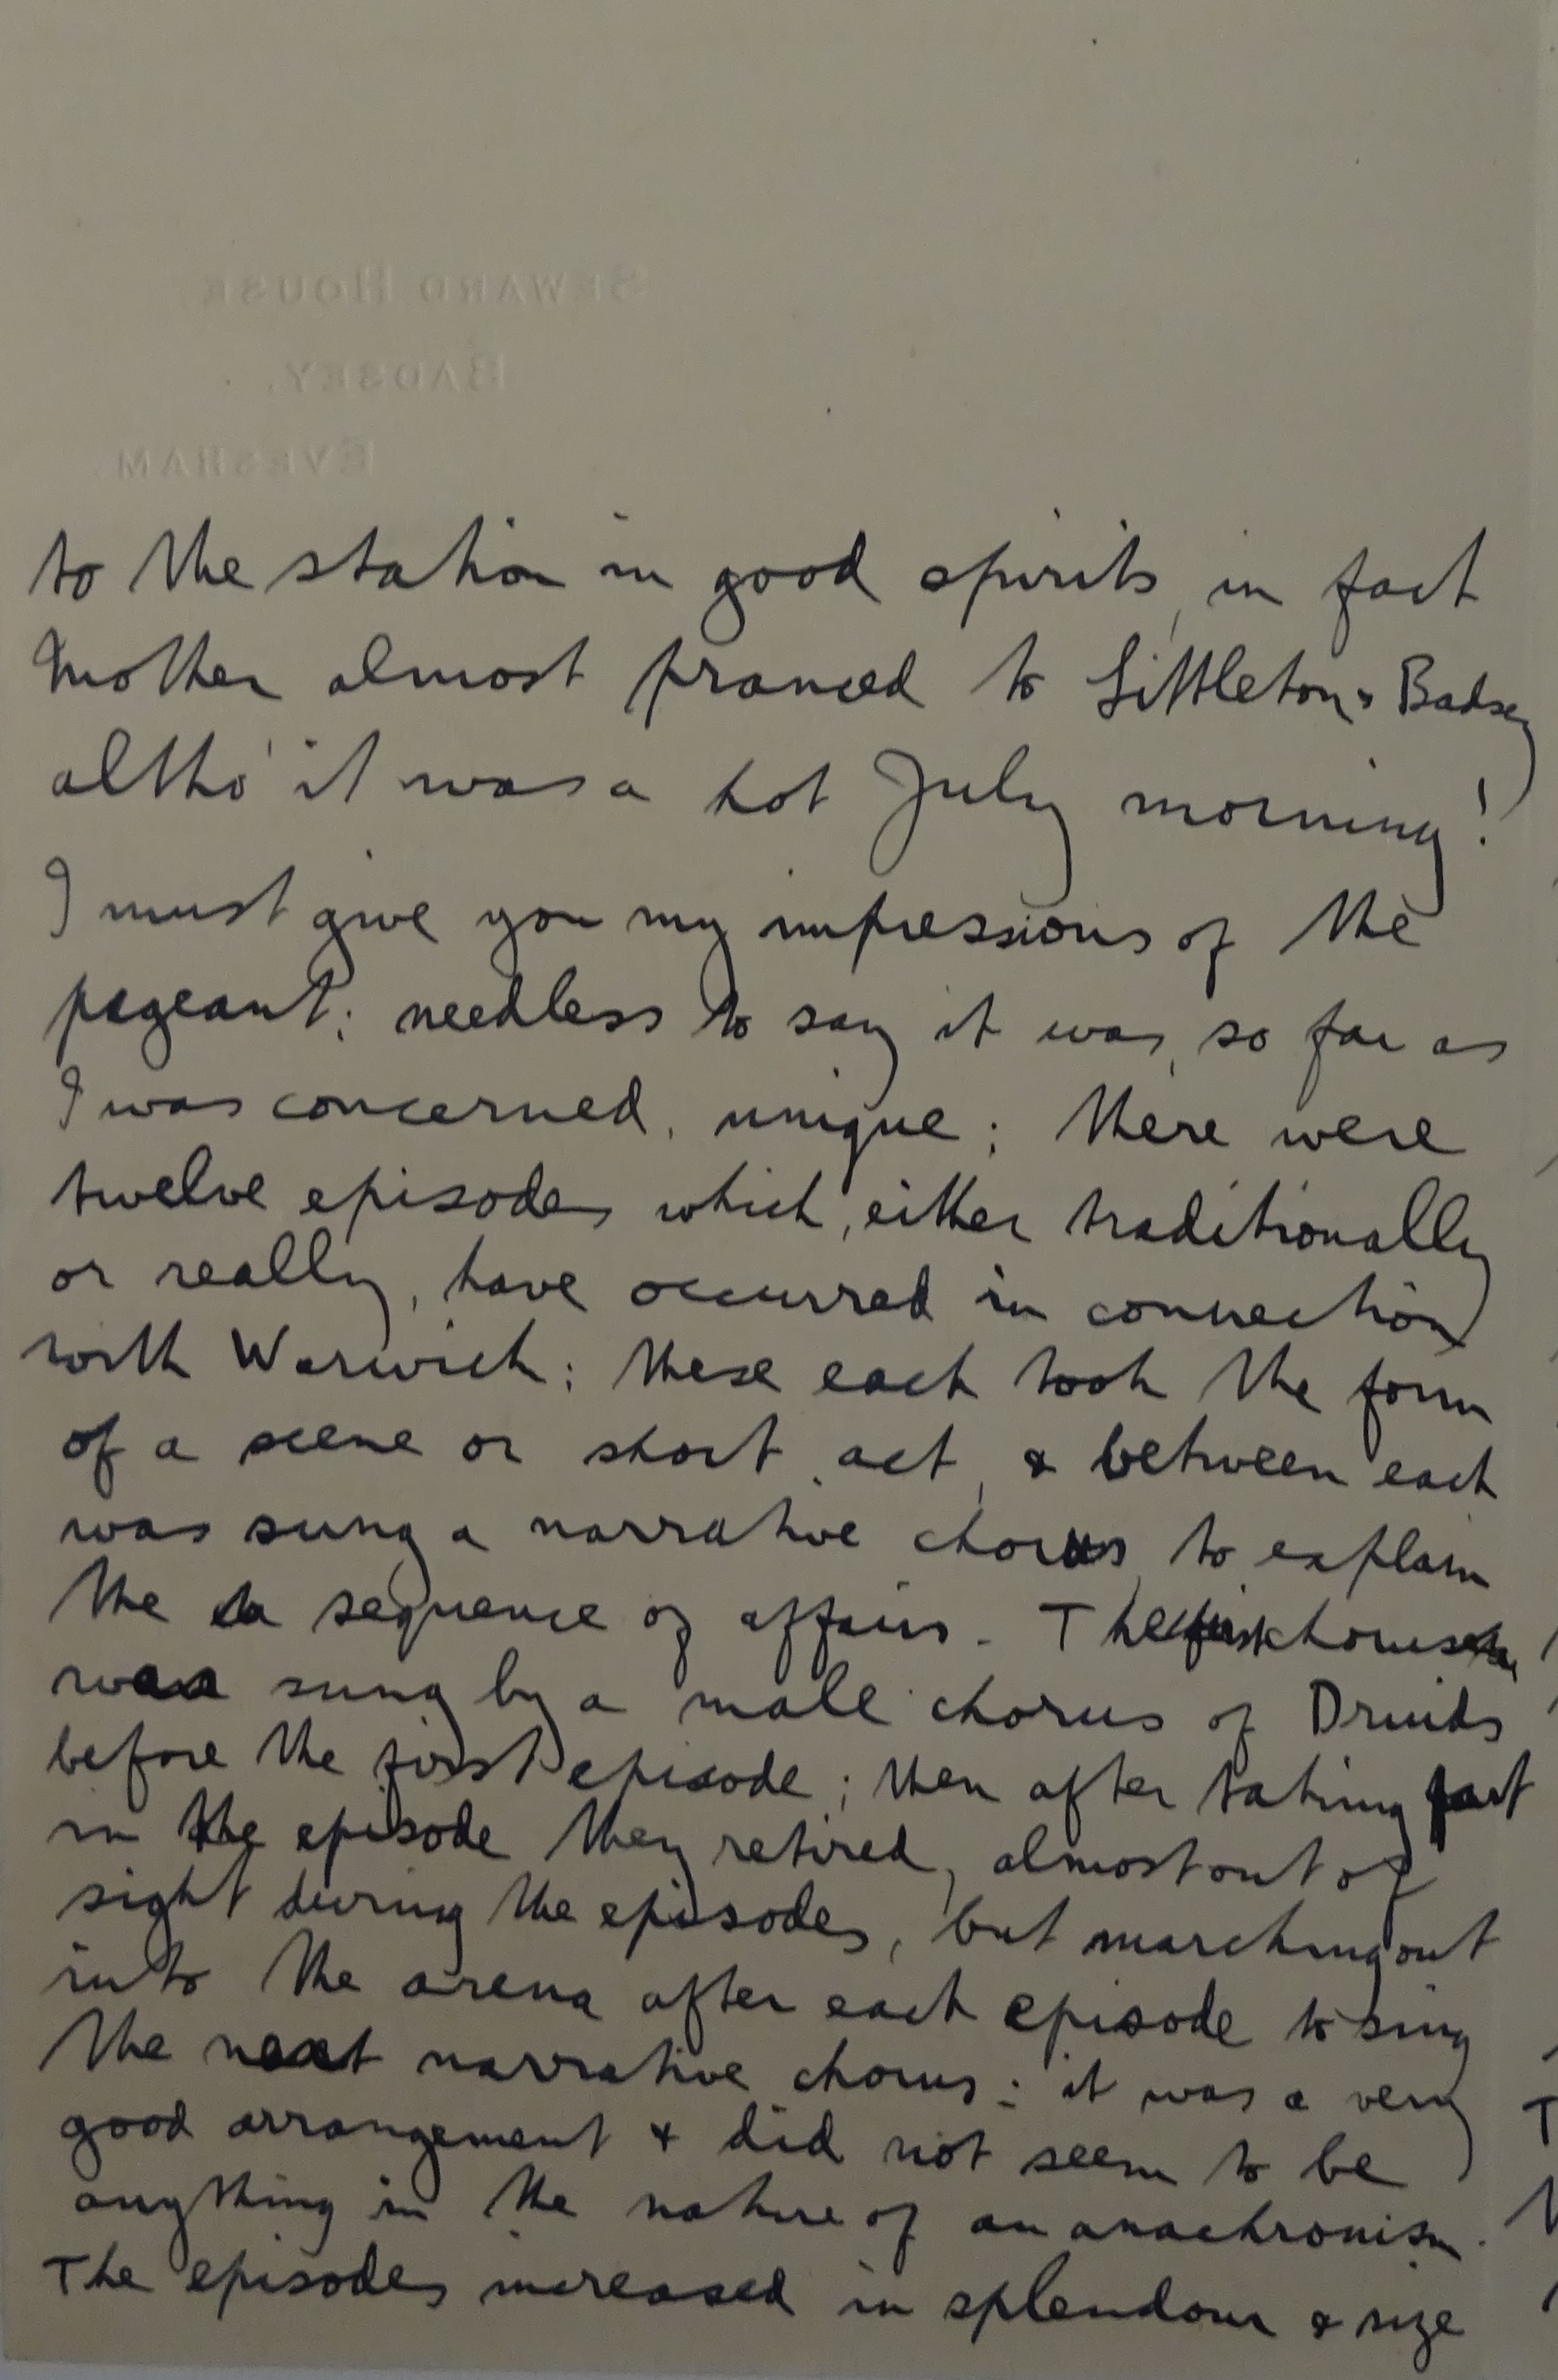 SEWARD HOUSE,
BADSEY,
EVESHAM.
to the station in good spirits, in fact
Mother almost pranced to Littleton & Badsey
altho' it was a hot July morning!
I must give you my impressions of the
pageant; needless to say it was, so far as
I was concerned, unique; there were
twelve episodes which, either traditionally
or really, have occurred in connection
with Warwick; these each took the form
of a scene or short act, & between each
was sung a narrative chorus, to explain
the sequence of affairs. The first chorus
was sung by a male chorus of Druids
before the first episode; then after taking part
in the episode they retired, almost out of
sight during the episodes, but marching out
into the arena after each episode to sing
the next narrative chorus: it was a very
good arrangement & did not seem to be
anything in the nature of an anachronism.
The episodes increased in splendour & size